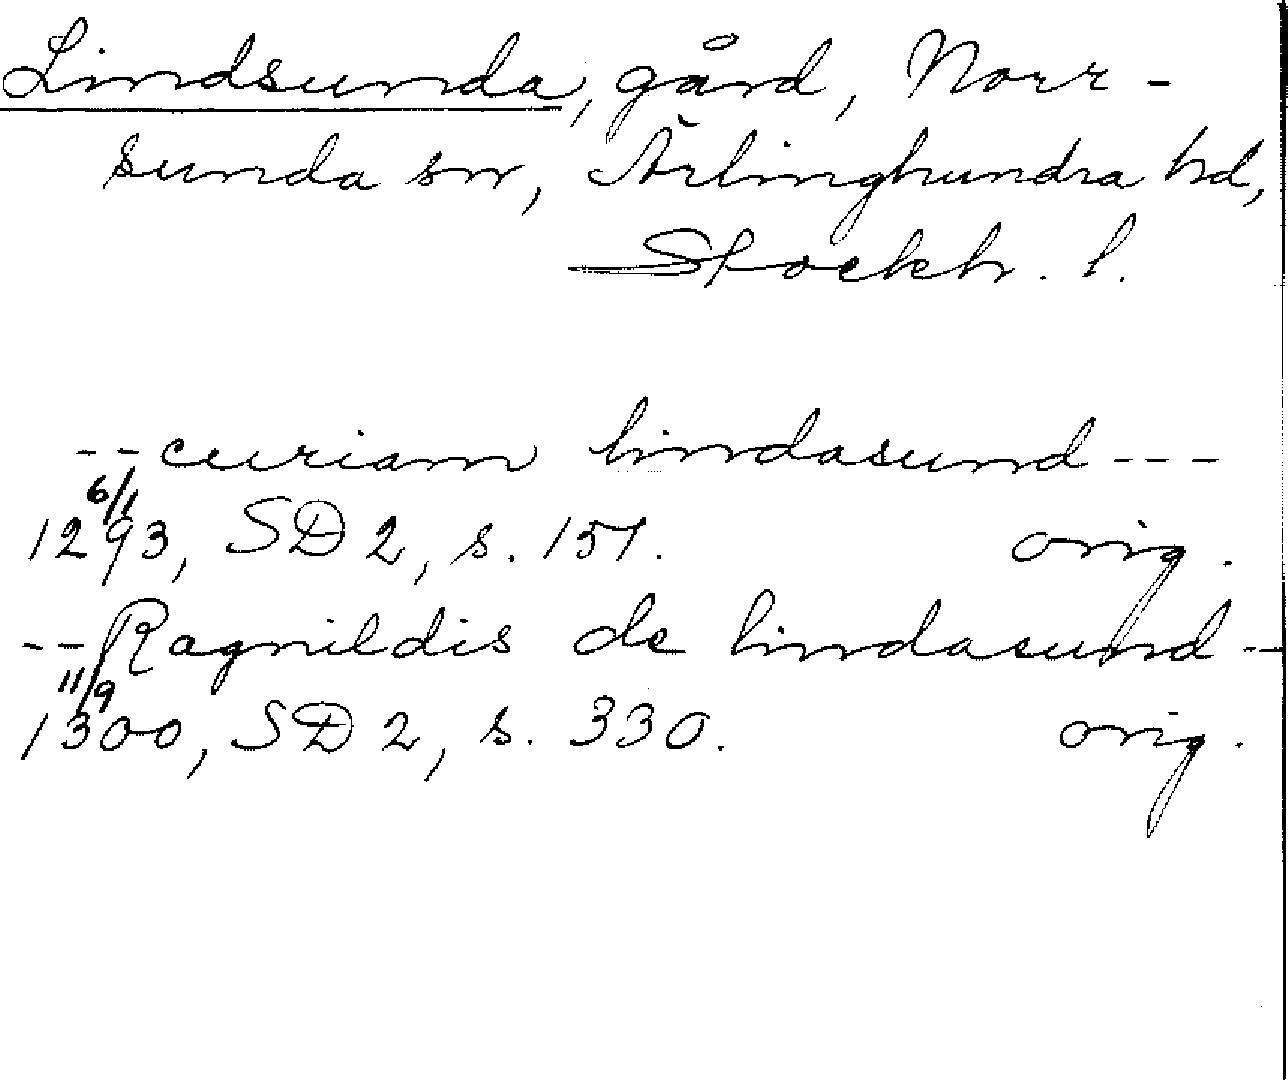 Lindsunda, gård, Norr-
sunda sn, Ärlinghundra hd,
Stockh. l.
-- curiam lindasund ---
6/1
1293, SD 2, s. 151. orig.
-- Ragnildis de lindasund --
11/9
1300, SD 2, s. 330. orig.